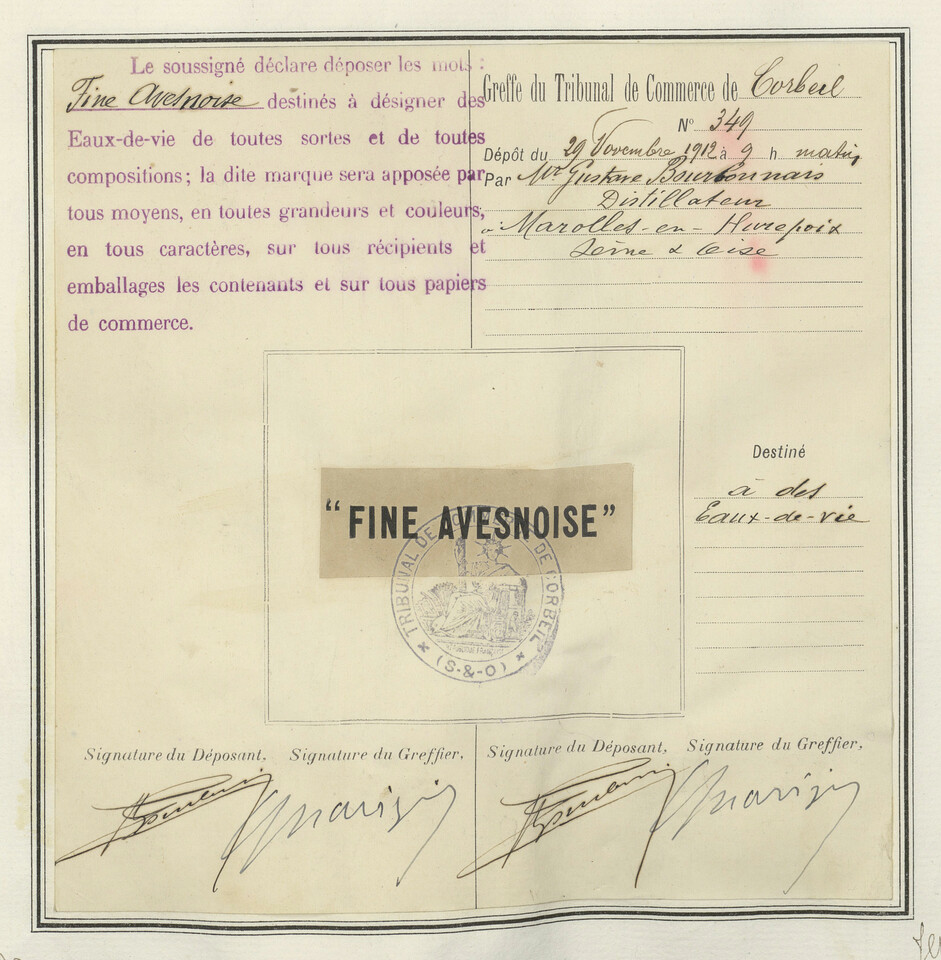 Le soussigné déclare déposer les mots :
Fine Avesnoise destinés à désigner des
Eaux-de-vie de toutes sortes et de toutes
compositions; la dite marque sera apposée par
tous moyens, en toutes grandeurs et couleurs,
en tous caractères, sur tous récipients et
emballages les contenants et sur tous papiers
de commerce.
Greffe du Tribunal de Commerce de Corbeil
N° 349
Dépôt du 29 Novembre 1912 à 9 h matin
Par Mr Gustave Bourbonnais
Distillateur
à Marolles-en-Hurepoix
Seine & Oise
"FINE AVESNOISE"
TRIBUNAL DE COMMERCE DE CORBEIL
(S-&-O)
Destiné
à des
Eaux-de-vie
Signature du Déposant, Signature du Greffier,
Signature du Déposant, Signature du Greffier,